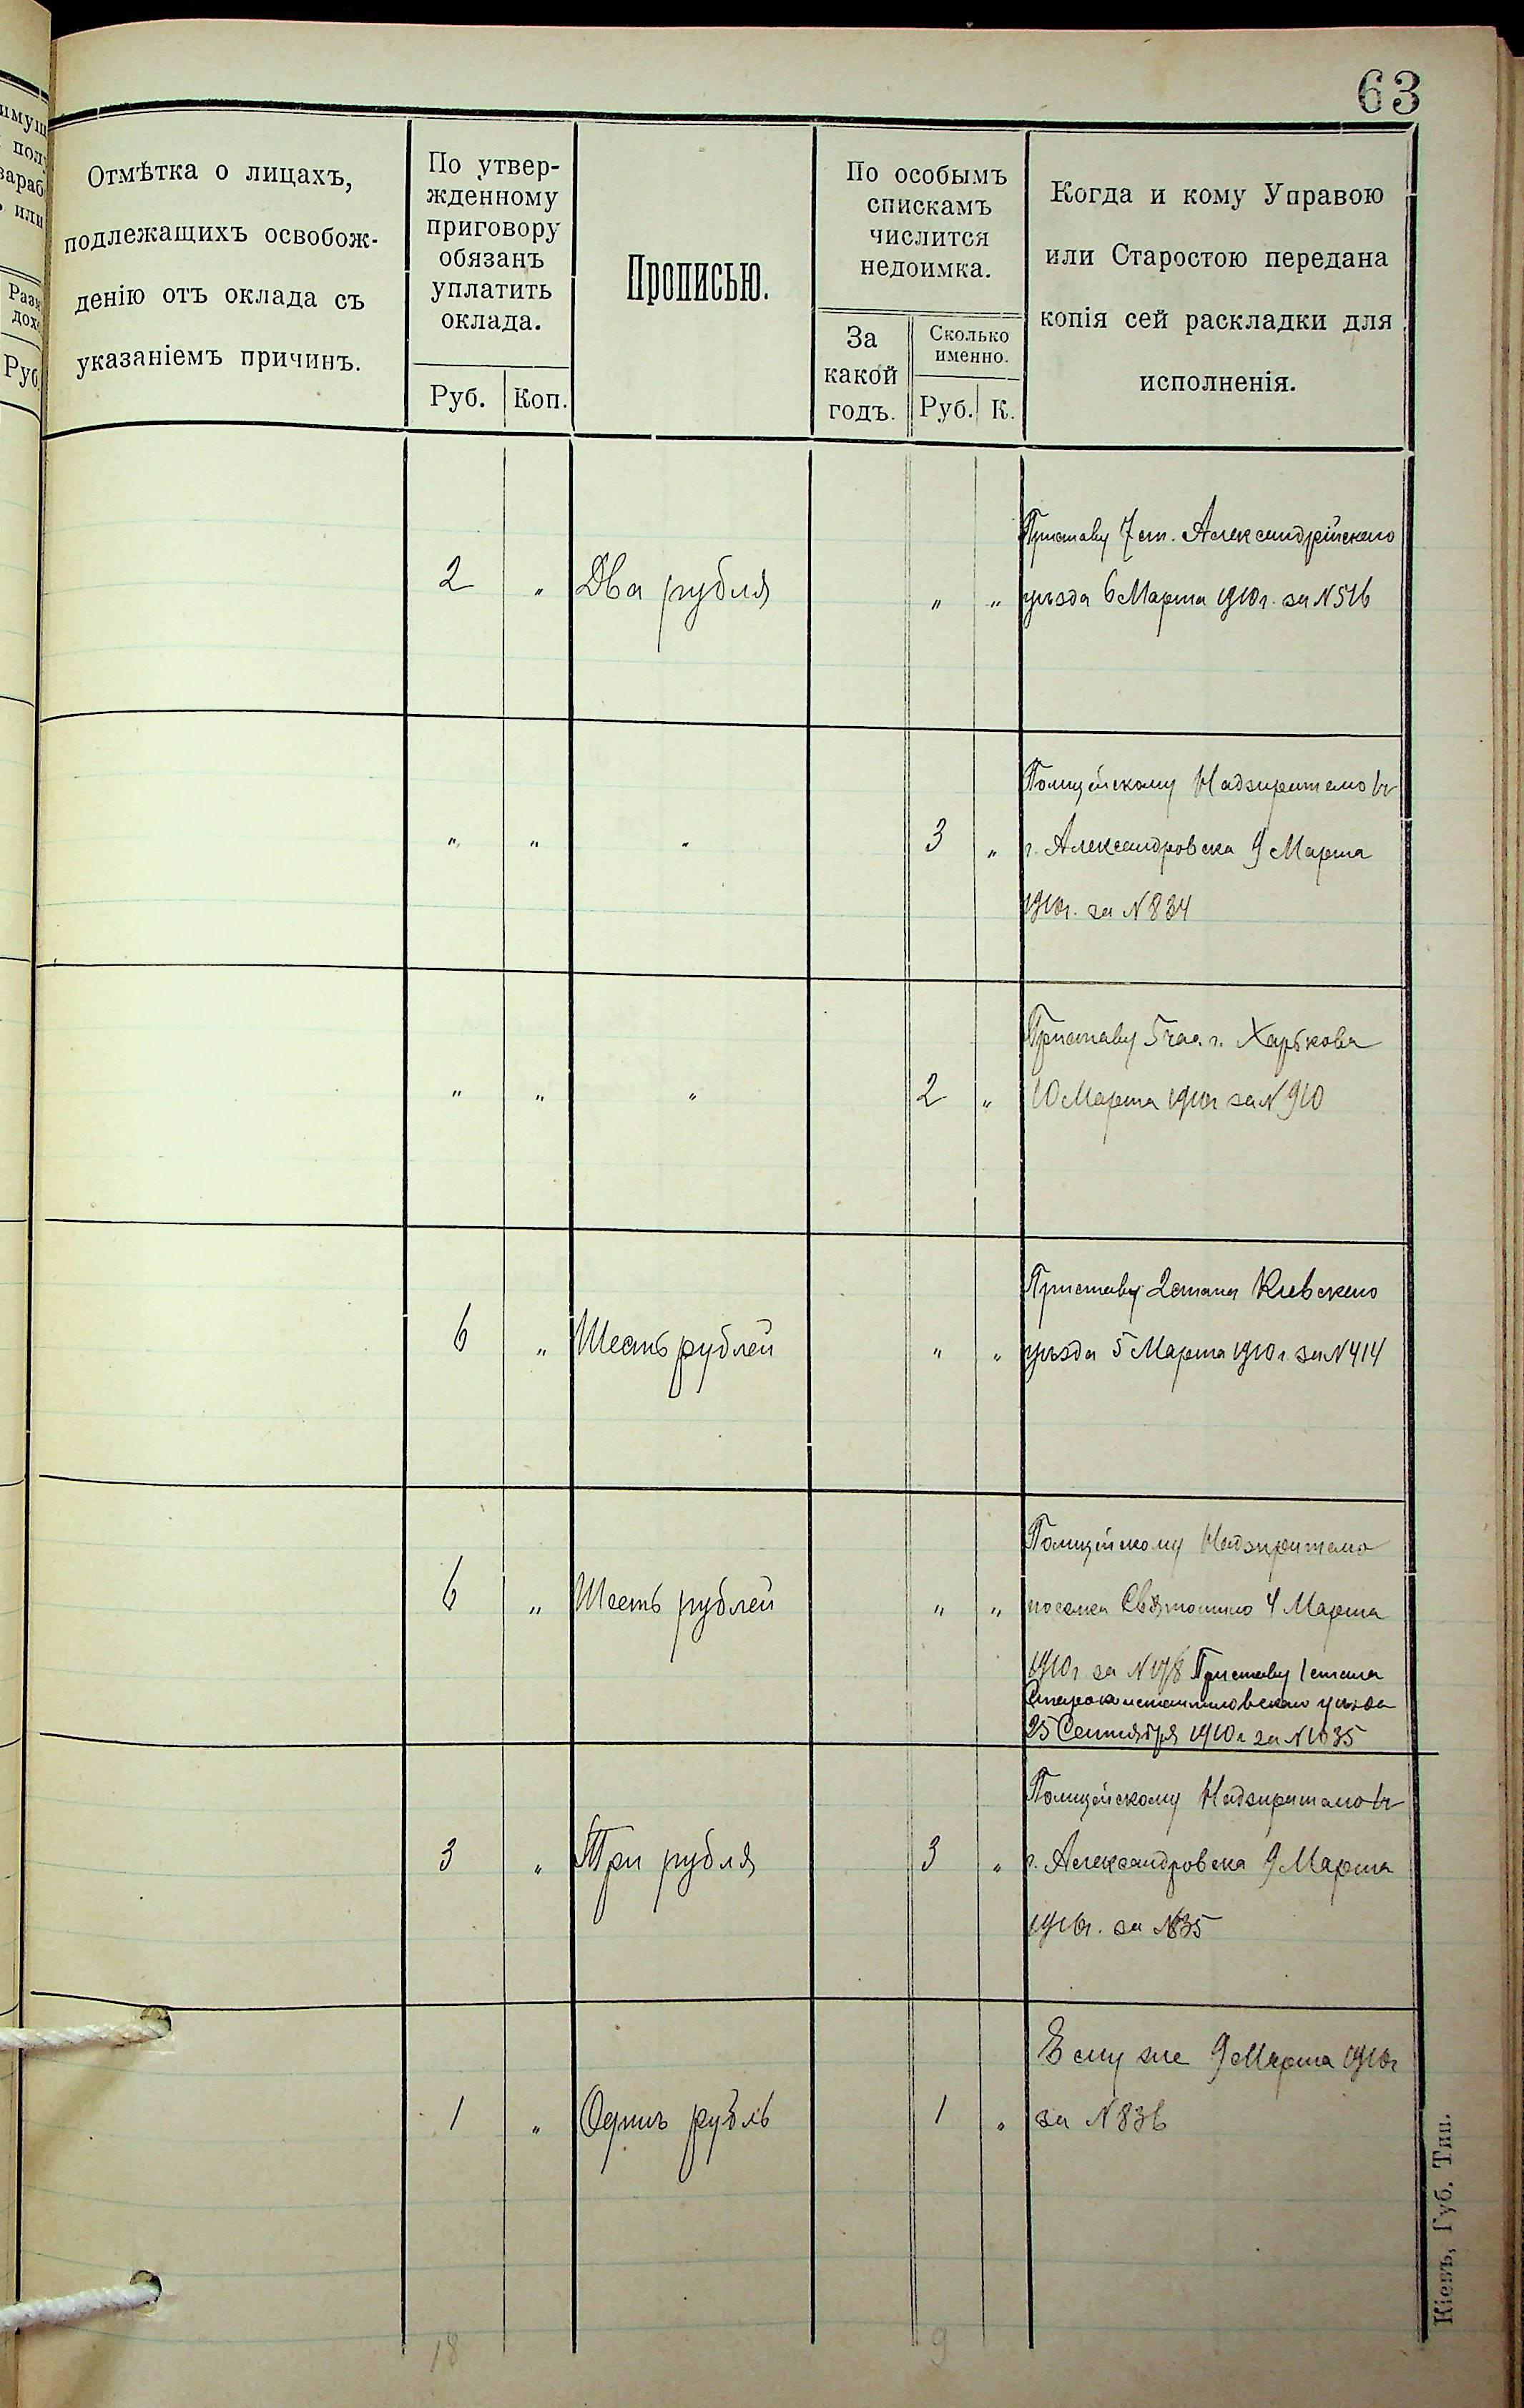 63
имущ
пол
зараб
или
Разм
дох
Руб.
Отмѣтка о лицахъ,
подлежащихъ освобож-
денію отъ оклада съ
указаніемъ причинъ.
По утвер-
жденному
приговору
обязанъ
уплатить
оклада.
Руб. Коп.
Прописью.
По особымъ
спискамъ
числится
недоимка.
За
какой
годъ.
Сколько
именно.
Руб. К.
Когда и кому Управою
или Старостою передана
копія сей раскладки для
исполненія.
Приставу 7 ст. Александрійскаго
2 „ Два рубля „ „ уѣзда 6 Марта 1910 г. за N 516
Полицейскому Надзирателю
„ „ „ 3 „ г. Александровска 9 Марта
1910 г. за N 834
Приставу 5 час. г. Харькова
„ „ „ 2 „ 10 Марта 1910 г за N 910
Приставу 2 стана Кіевскаго
6 „ Шесть рублей „ „ уѣзда 5 Марта 1910 г. за N 414
Полицейскому Надзирателю
6 „ Шесть рублей „ „ поселка Святошино 4 Марта
1910 г за N 178 Приставу 1 стана
Староконстантиновскаго уѣзда
25 Сентября 1910 г за N 1035
Полицейскому Надзирателю
3 „ Три рубля 3 „ г. Александровска 9 Марта
1910 г. за N 835
Ему же 9 Марта 1910 г
1 „ Одинъ рубль 1 „ за N 836
18 9
Кіевъ, Губ. Тип.